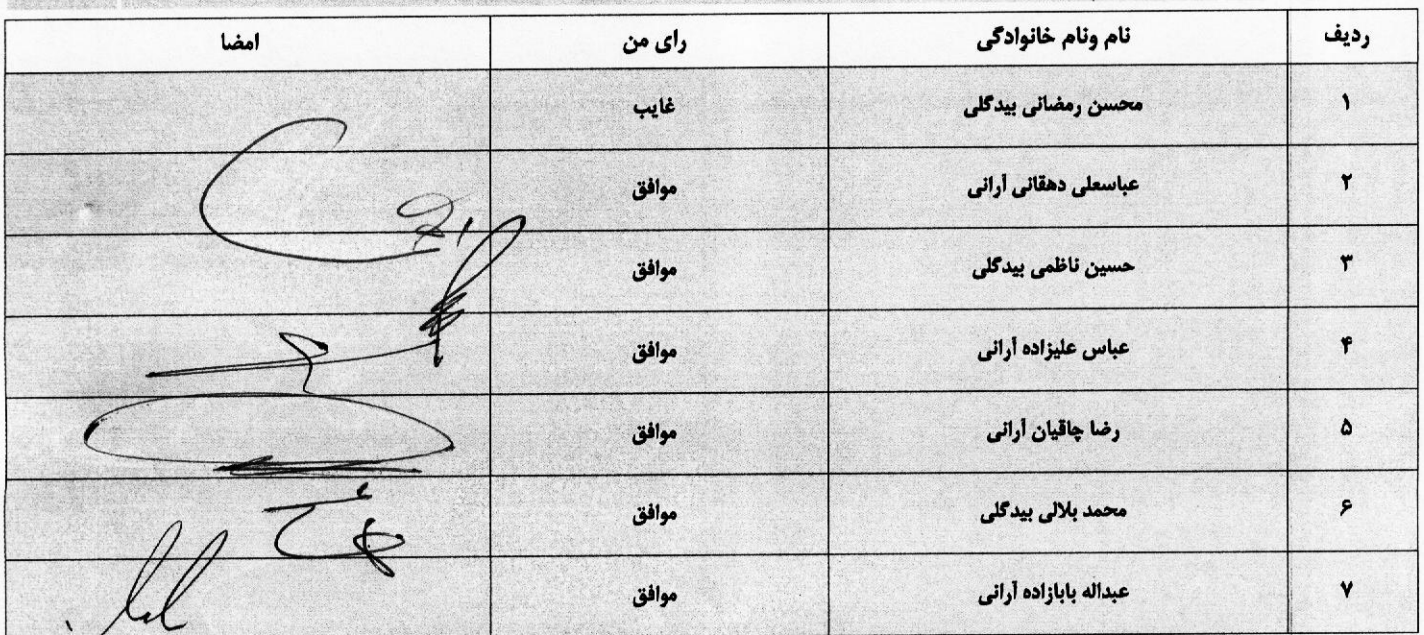 ردیف نام ونام خانوادگی رای من امضا
۱ محسن رمضانی بیدگلی غایب
۲ عباسعلی دهقانی آرانی موافق
۳ حسین ناظمی بیدگلی موافق
۴ عباس علیزاده آرانی موافق
۵ رضا چاقیان آرانی موافق
۶ محمد بلالی بیدگلی موافق
۷ عبداله بابازاده آرانی موافق